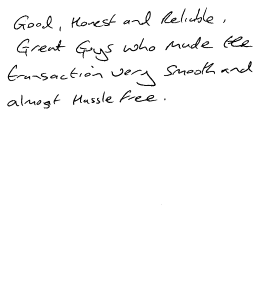 Good, Honest and Reliable.
Great Guys who made the
transaction very smooth and
almost Hassle Free.